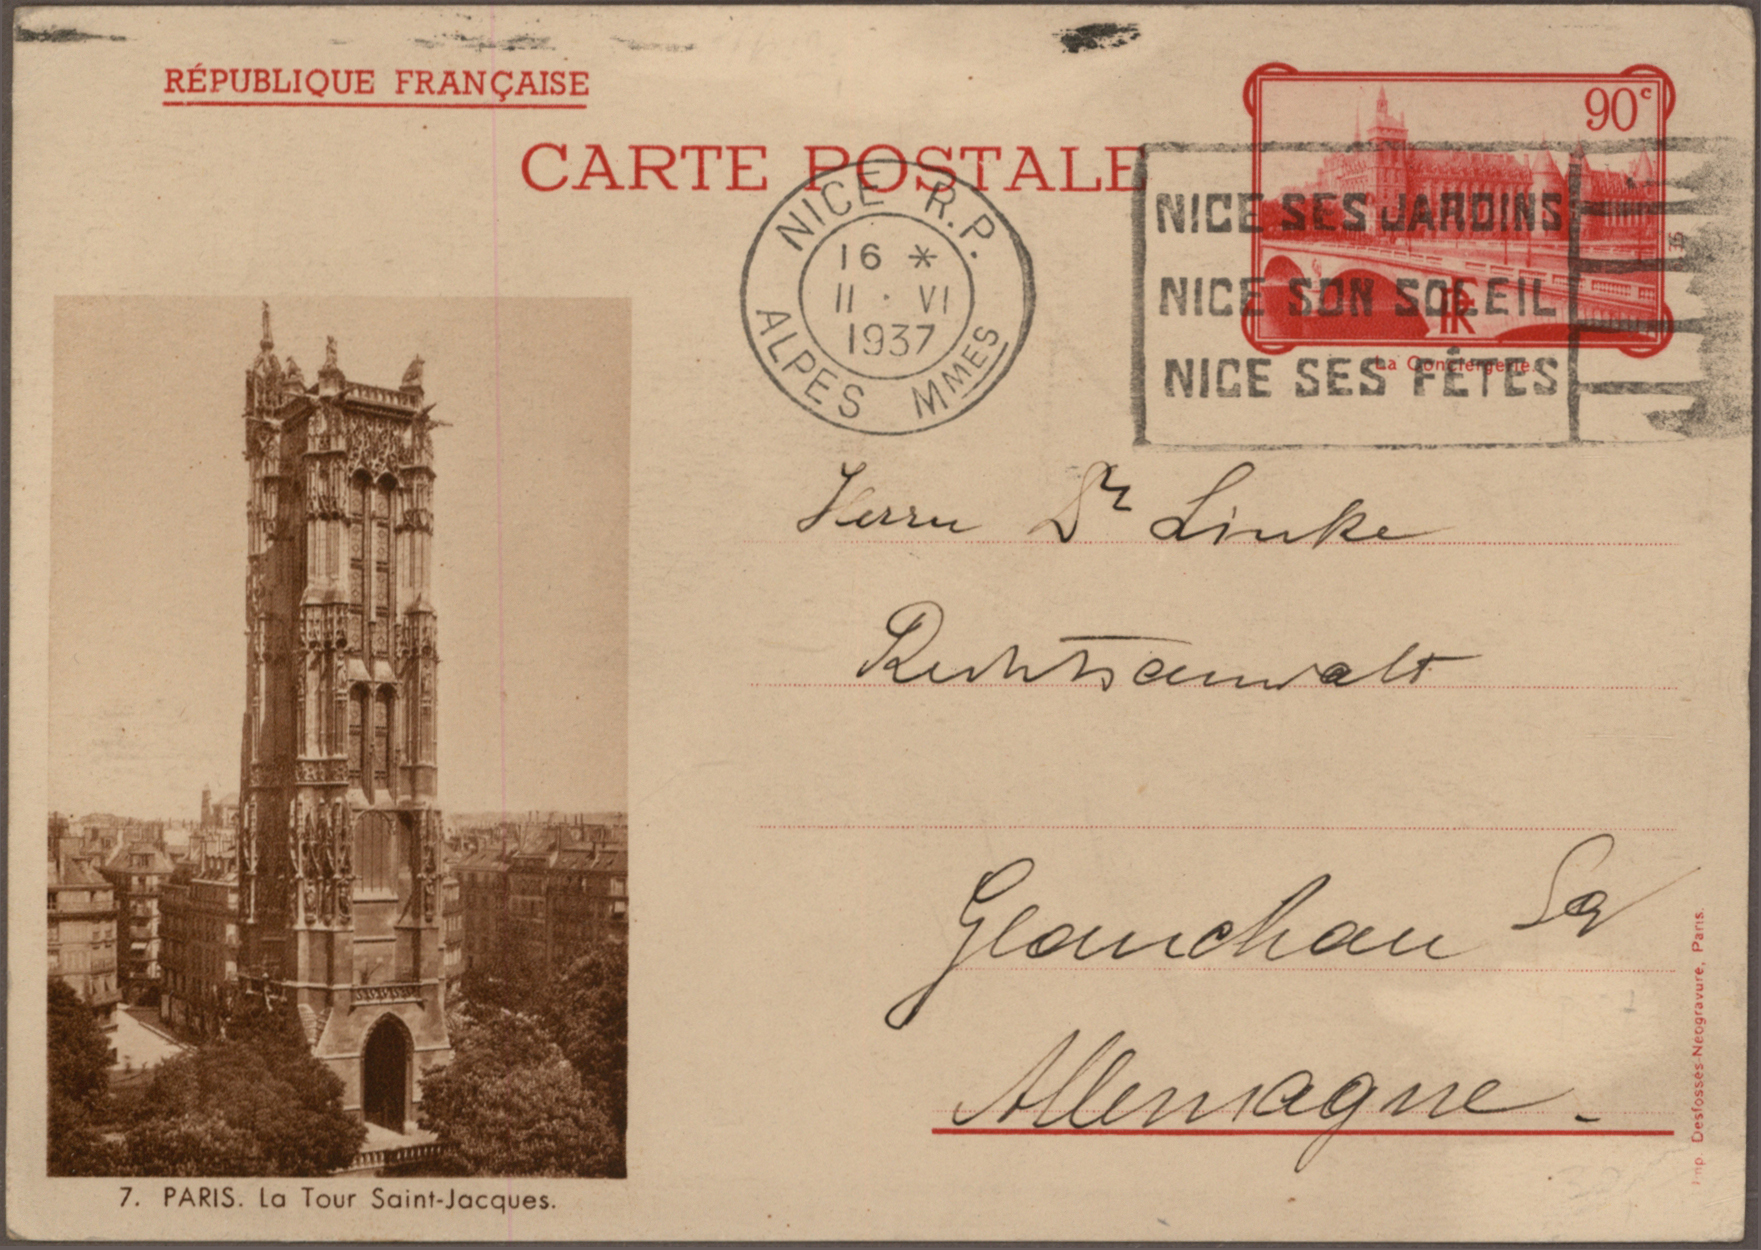 RÉPUBLIQUE FRANÇAISE
CARTE POSTALE
90c
NICE R.P.
16 *
II · VI
1937
ALPES MMES
NICE SES JARDINS
NICE SON SOLEIL
NICE SES FÊTES
RF
La Conciergerie.
Herrn Dr Linke
Rechtsanwalt
Glauchau Sa
Allemagne.
7. PARIS. La Tour Saint-Jacques.
Imp. Desfossés-Néogravure, Paris.